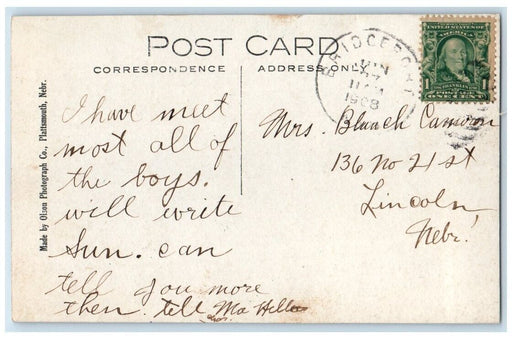 POST CARD
CORRESPONDENCE
ADDRESS ONLY
BRIDGEPORT
JUN
11 AM
1908
UNITED STATES OF AMERICA
FRANKLIN
ONE CENT
Made by Olson Photograph Co., Plattsmouth, Nebr.
I have meet
most all of
the boys.
will write
Sun. can
tell you more
then. tell Ma Hello
Mrs. Blanch Cameron
136 No 21 st
Lincoln
Nebr.